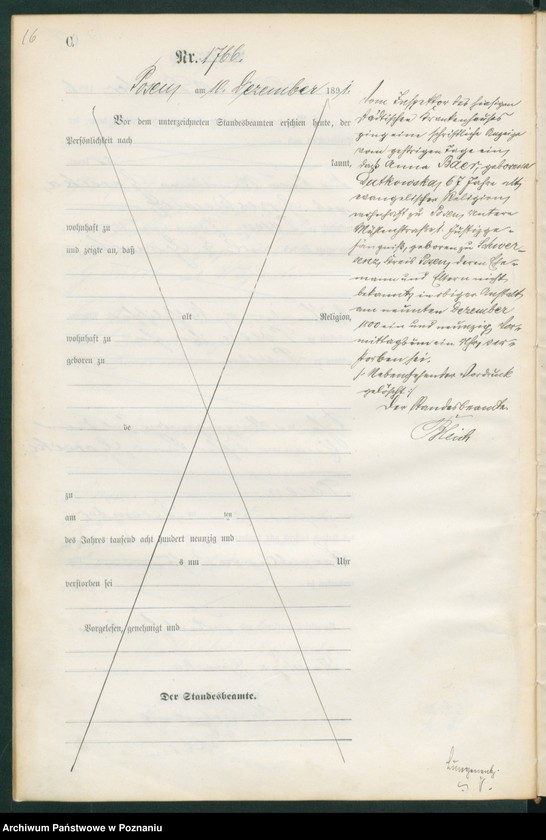 16
C.
Nr. 1766.
Posen am 10. Dezember 1891.
Vor dem unterzeichneten Standesbeamten erschien heute, der
Persönlichkeit nach
kannt,
wohnhaft zu
und zeigte an, daß
alt Religion,
wohnhaft zu
geboren zu
de
zu
am ten
des Jahrs tausend acht hundert neunzig und
s um Uhr
verstorben sei
Vorgelesen, genehmigt und
Der Standesbeamte.
Vom Inspektor des hiesigen
städtischen Krankenhauses
ging eine schriftliche Anzeige
vom gestrigen Tage ein,
daß Anna Baer, geborene
Rutkowska, 67 Jahre alt,
evangelischer Religion,
wohnhaft zu Posen, Untere
Mühlenstraße, Justizge-
fängniß, geboren zu Schwer-
senz, Kreis Posen, deren Ehe-
mann und Eltern nicht
bekannt, in obiger Anstalt,
am neunten Dezember
1800 ein und neunzig, Vor-
mittags um ein Uhr, ver-
storben sei.
/: Nebenstehender Vordruck
gelöscht :/
Der Standesbeamte
Bleich
Archiwum Państwowe w Poznaniu